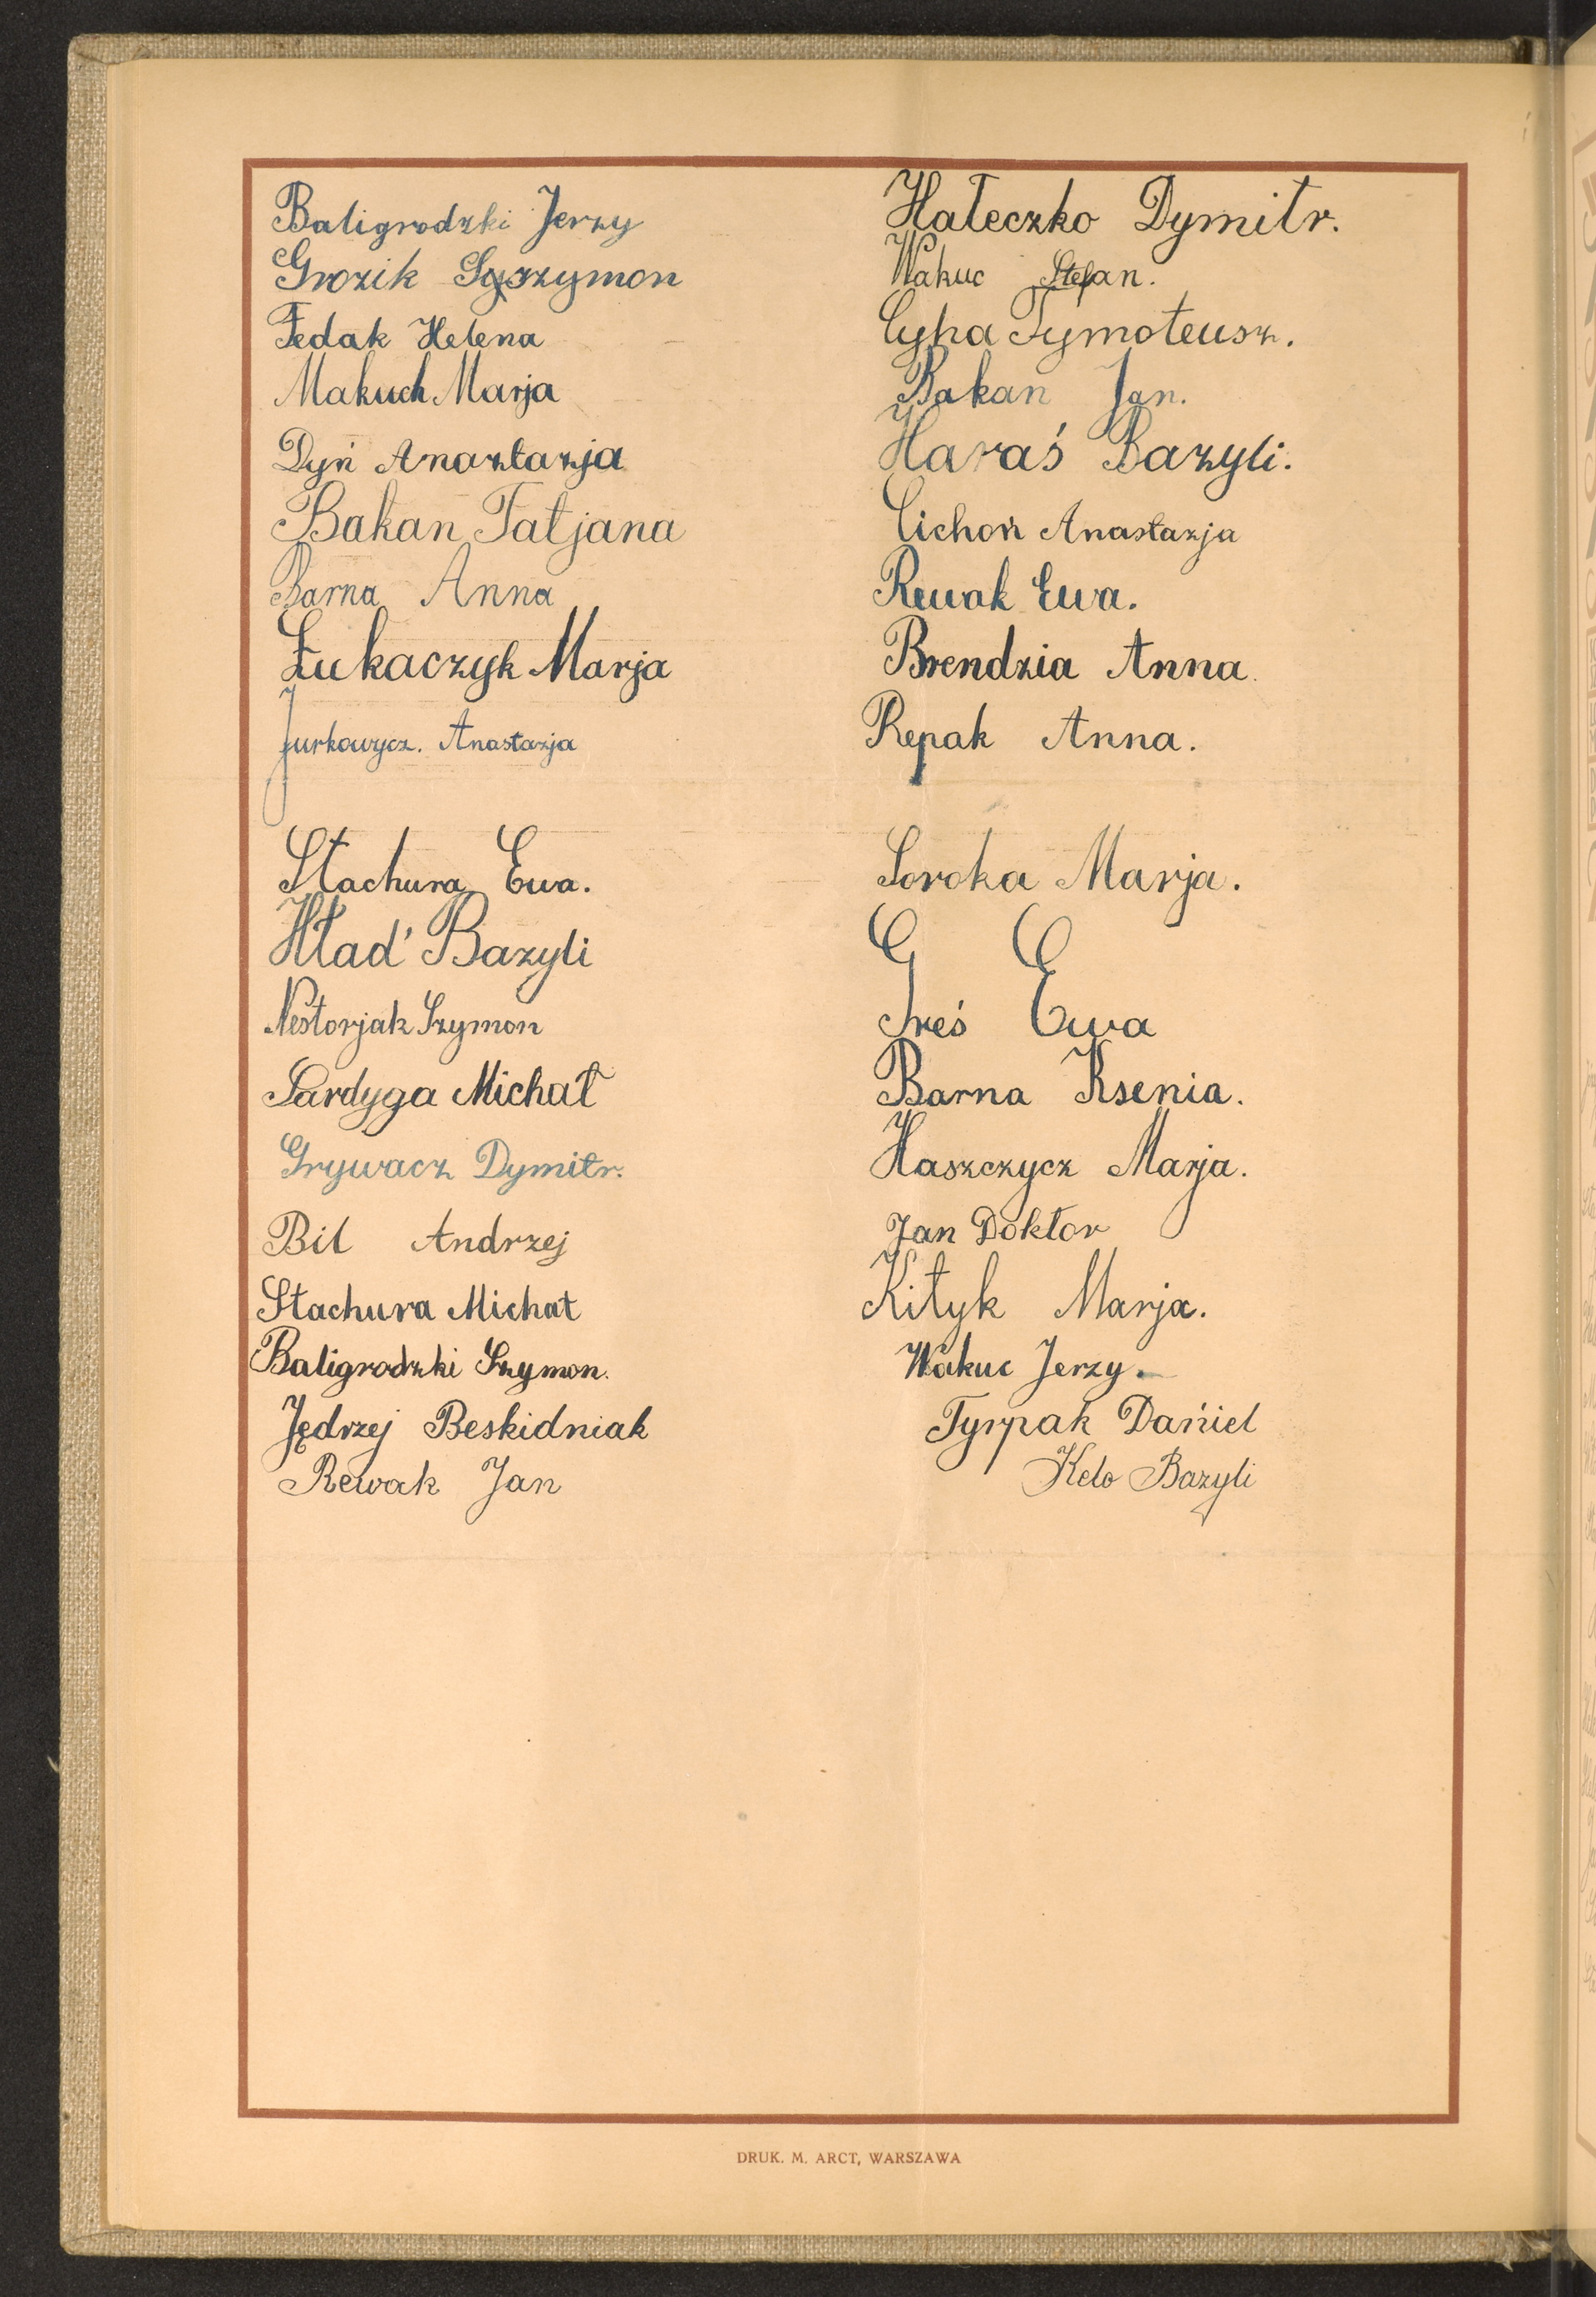 Baligrodzki Jerzy
Grozik Szymon
Fedak Helena
Makuch Marja
Dyń Anaztazja
Bakan Tatjana
Barna Anna
Łukaczyk Marja
Jurkowycz. Anastazja
Stachura Ewa.
Hład' Bazyli
Nestorjak Szymon
Sardyga Michał
Grywacz Dymitr.
Bil Andrzej
Stachura Michał
Baligrodzki Szymon.
Jędrzej Beskidniak
Rewak Jan
Hałeczko Dymitr.
Wakuc Stefan.
Cyha Tymoteusz.
Bakan Jan.
Haraś Bazyli.
Cichoń Anastazja
Rewak Ewa.
Brendzia Anna.
Repak Anna.
Soroka Marja.
Greś Ewa
Barna Ksenia.
Haszczycz Marja.
Jan Doktor
Kityk Marja.
Wakuc Jerzy.
Tyrpak Dańiel
Kelo Bazyli
DRUK. M. ARCT, WARSZAWA